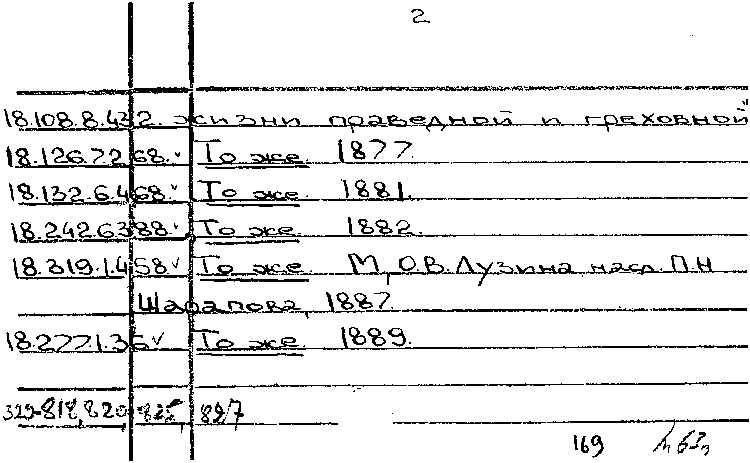 2
18.108.8.432. жизни праведной и греховной"
18.126.7.268. То же 1877.
18.132.6.468 То же 1881.
18.242.6.388. То же 1882.
18.319.1.458 То же. М, О.В. Лузина насл. П.Н
Шарапова, 1887.
18.277.1.36 То же. 1889.
89/7
169